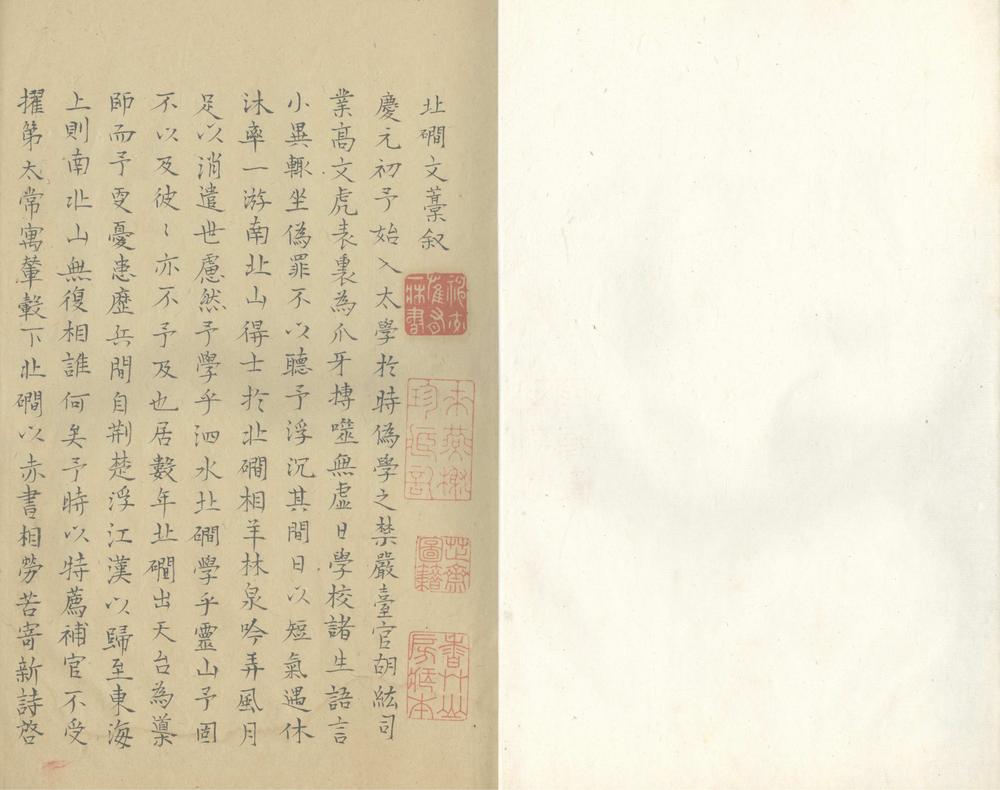 北磵文藁叙
慶元初予始入太學於時偽學之禁嚴臺官胡紘司
業高文虎表裏為爪牙摶噬無虛日學校諸生語言
小異輒坐偽罪不以聽予浮沉其間日以短氣遇休
沐率一游南北山得士於北磵相羊林泉吟弄風月
足以消遣世慮然予學乎泗水北磵學乎靈山予固
不以及彼〻亦不予及也居數年北磵出天台為導
師而予更憂患歷兵間自荆楚浮江漢以歸至東海
上則南北山無復相誰何矣予時以特薦補官不受
擢第太常寓輦轂下北磵以赤書相勞苦寄新詩啓
朱燕榭
珍藏記
芷齋
圖籍
香竹山
房藏本